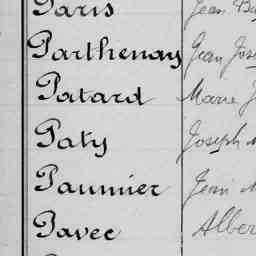 Paris Jean
Parthenay Jean
Patard Marie
Paty Joseph
Paumier Jean
Pavec